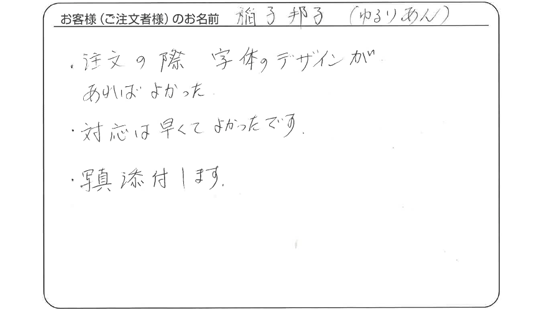 お客様(ご注文者様)のお名前 稲子邦子 (ゆるりあん)
・注文の際 字体のデザインが
あればよかった
・対応は早くてよかったです.
・写真添付します.